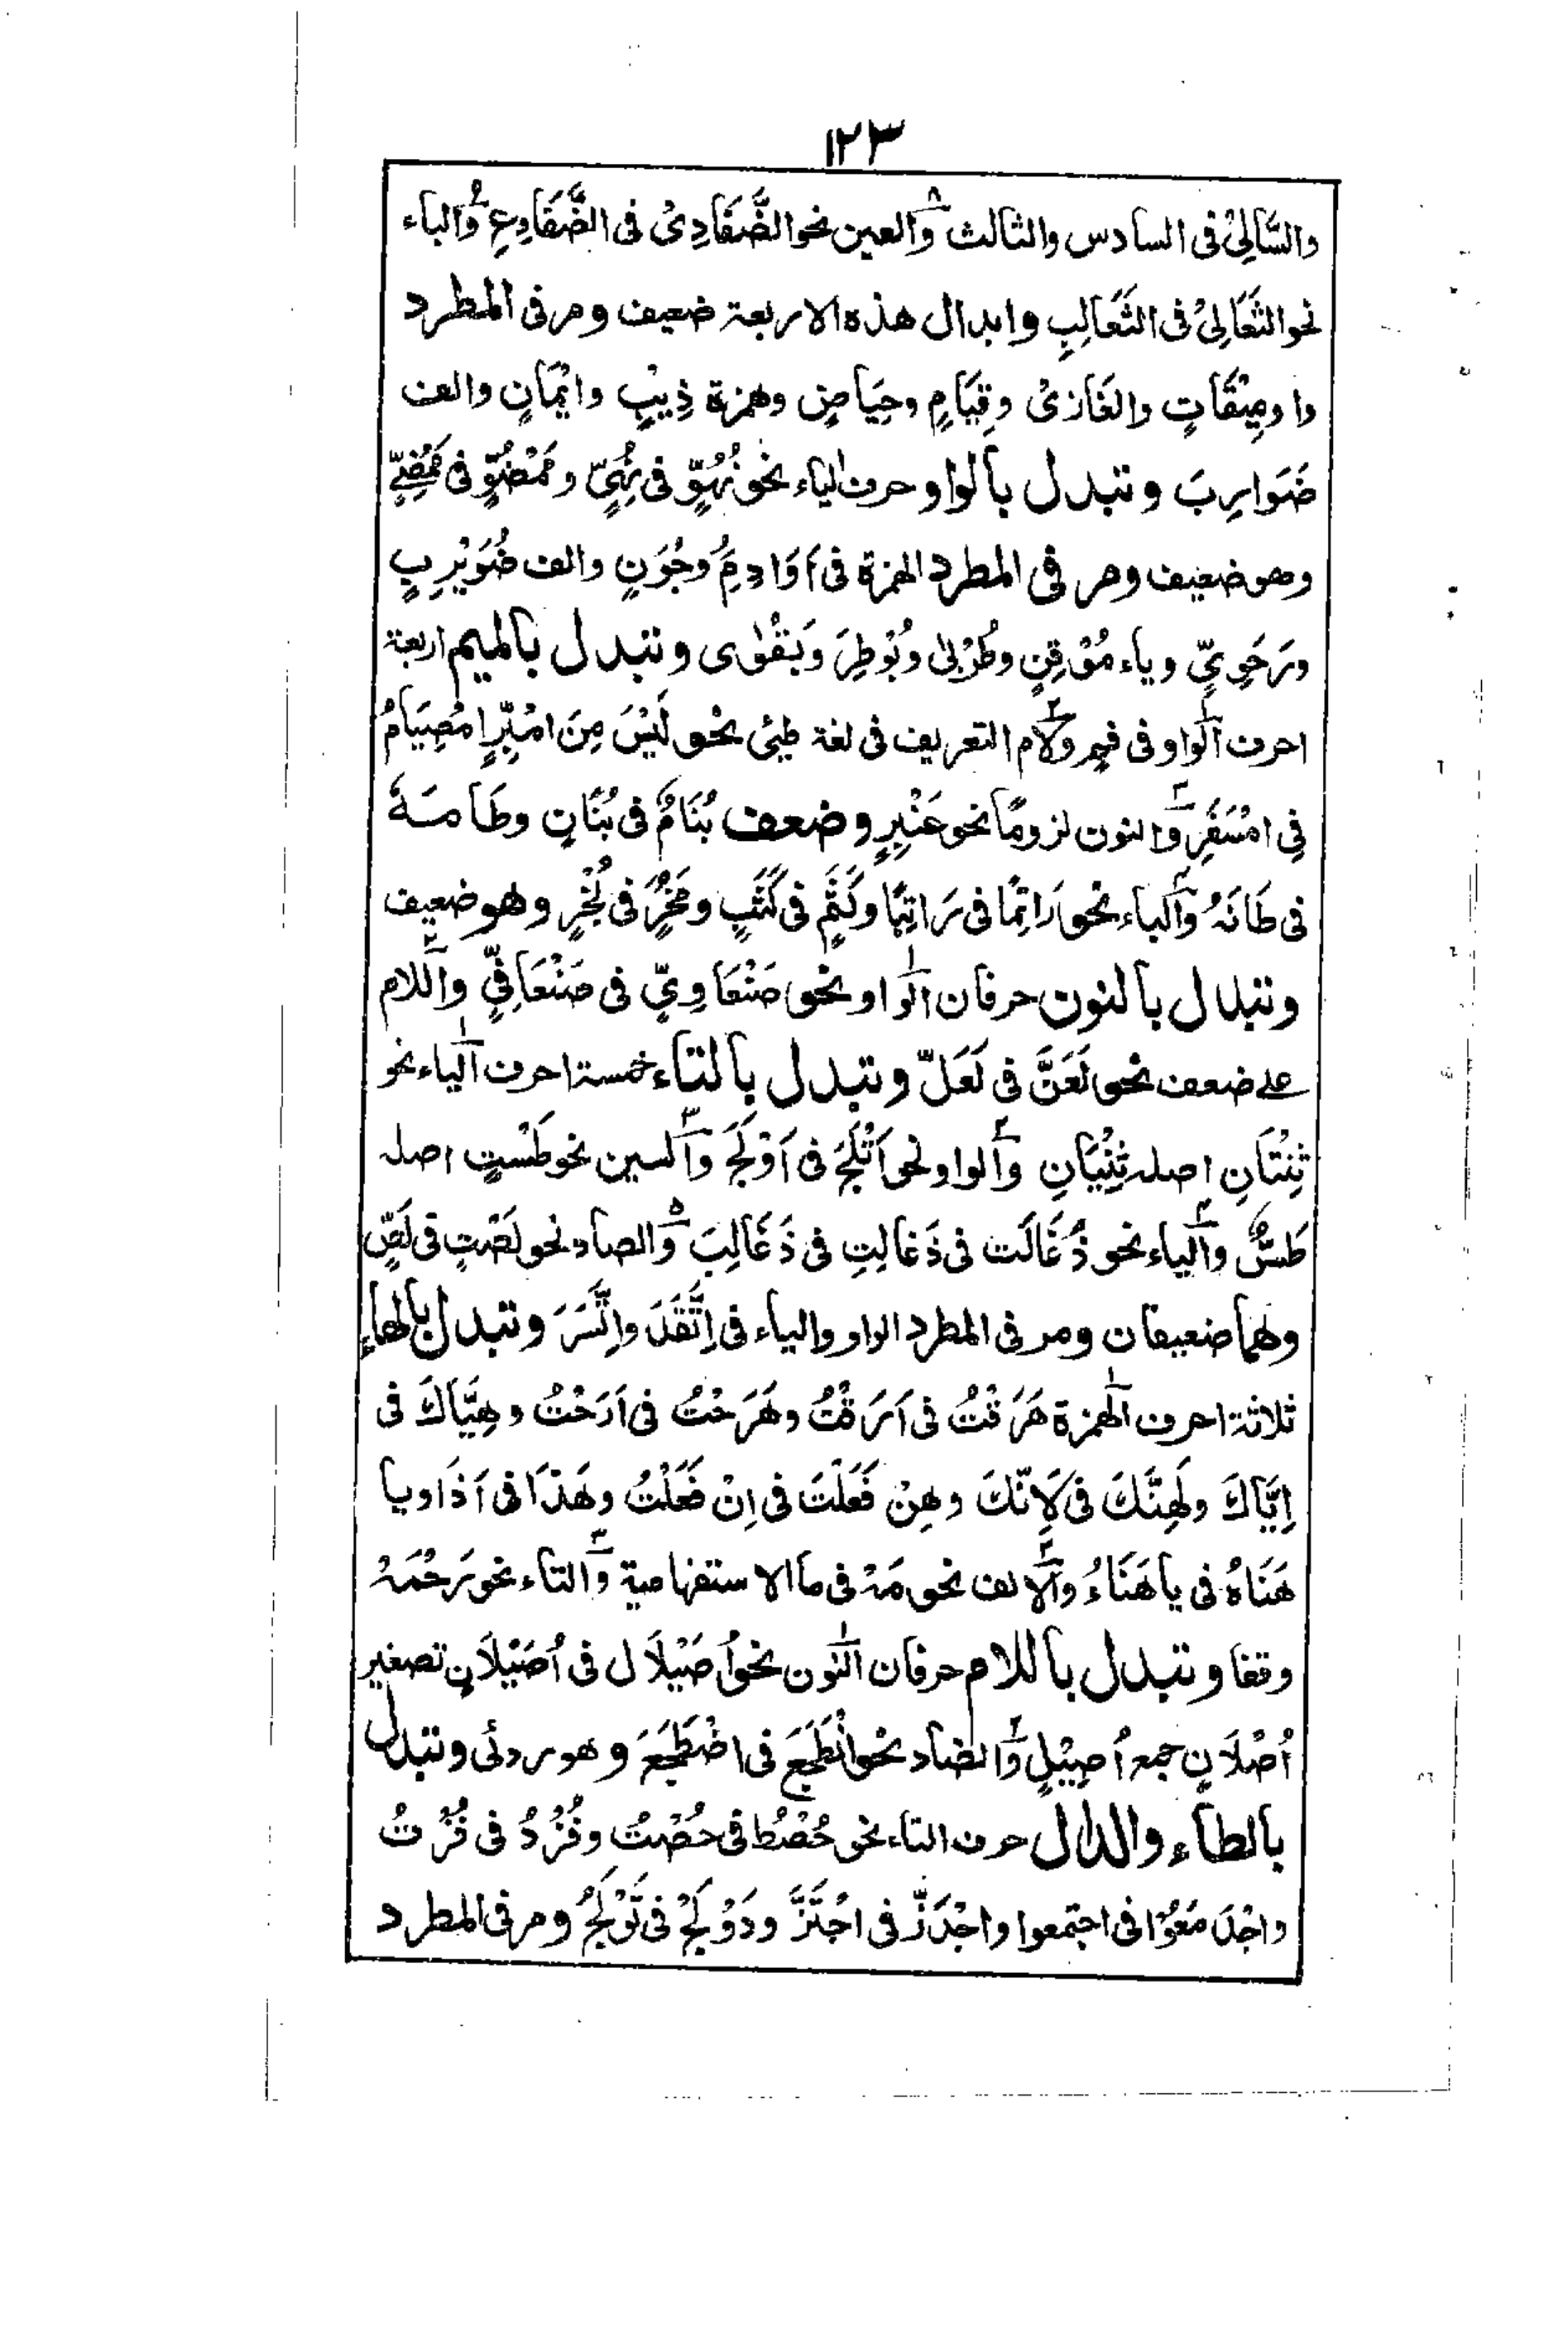 ١٢٣
والسَّالِیْ فی السادس والثالث ٨ والعین نحو الضَّفَادِیْ فی الضَّفَادِعِ ٩ والباء
نحو الثَّعَالِیْ فی الثَّعَالِبِ وابدال هذه الاربعة ضعیف ومر فی المطرد
واو مِیْقَاتٍ والغَازِیْ وقِیَامٍ وحِیَاضٍ وهمزة ذِیْبٍ واِیْمَانٍ والف
ضَوَارِیبَ وتبدل بالواو حرف الیاء نحو نُهُوٍّ فی نُهِیٍّ ومَمْضُوٍّ فی مَمْضِیٍّ
وهو ضعیف ومر فی المطرد الهمزة فی اَوَادِمُ وجُوَنٍ والف ضُوَیْرِبٍ
ورَحَوِیٍّ ویاء مُوْقِنٍ وطُوْبٰی وبُوْطِرَ وبَقْوٰی وتبدل بالمیم اربعة
احرف ١ الواو فی فم ٢ ولام التعریف فی لغة طیئ نحو لَیْسَ مِنَ امْبِرِّ امْصِیَامُ
فِی امْسَفَرِ ٣ والنون لزومًا نحو عَنْبِرٍ وضعف بُنَامٌ فی بُنَانٍ وطَامَهُ
فی طَانَهُ ٤ والباء نحو رَاتِمًا فی رَاتِبًا وكَثَمٍ فی كَثَبٍ ومَخْرٌ فی بُخْرٍ وهو ضعیف
وتبدل بالنون حرفان ١ الواو نحو صَنْعَاوِیٍّ فی صَنْعَانِیٍّ ٢ واللام
علے ضعف نحو لَعَنَّ فی لَعَلَّ وتبدل بالتاء خمسة احرف ١ الیاء نحو
ثِنْتَانِ اصله ثِنْیَانِ ٢ والواو نحو اَتْلَجَ فی اَوْلَجَ ٣ والسین نحو طَسْتٍ اصله
طَسٌّ ٤ والباء نحو ذَعَالَت فی ذَعَالِتِ فی ذَعَالِبَ ٥ والصاد نحو لَصْتٍ فی لَصٍّ
وهما ضعیفان ومر فی المطرد الواو والیاء فی اِتَّقَدَ واِتَّسَرَ وتبدل بالهاء
ثلاثة احرف ١ الهمزة هَرَقْتُ فی اَرَقْتُ وهَرَحْتُ فی اَرَحْتُ وهِیَّاكَ فی
اِیَّاكَ ولَهِنَّكَ فی لَاِنَّكَ وهِنْ فَعَلْتَ فی اِنْ فَعَلْتُ وهَذَا فی اَذَا ویا
هَنَاهُ فی یا هَنَاءُ ٢ والالف نحو مَهْ فی ما الاستفهامیة ٣ والتاء نحو رَحْمَهْ
وقفا وتبدل باللام حرفان ١ النون نحو اُصَیْلَال فی اُصَیْلَانٍ تصغیر
اُصْلَانٍ جمع اُصِیْلٍ ٢ والضاد نحو الْطَجَعَ فی اضْطَجَعَ وهو ردئی وتبدل
بالطاء والدال حرف التاء نحو حُصْطُ فی حُصْتُ وفُزْدُ فی فُزْتُ
واجْدَمَعُوْا فی اجتمعوا واجْدَزَّ فی اجْتَزَّ ودَوْلَجٌ فی تَوْلَجٌ ومر فی المطرد